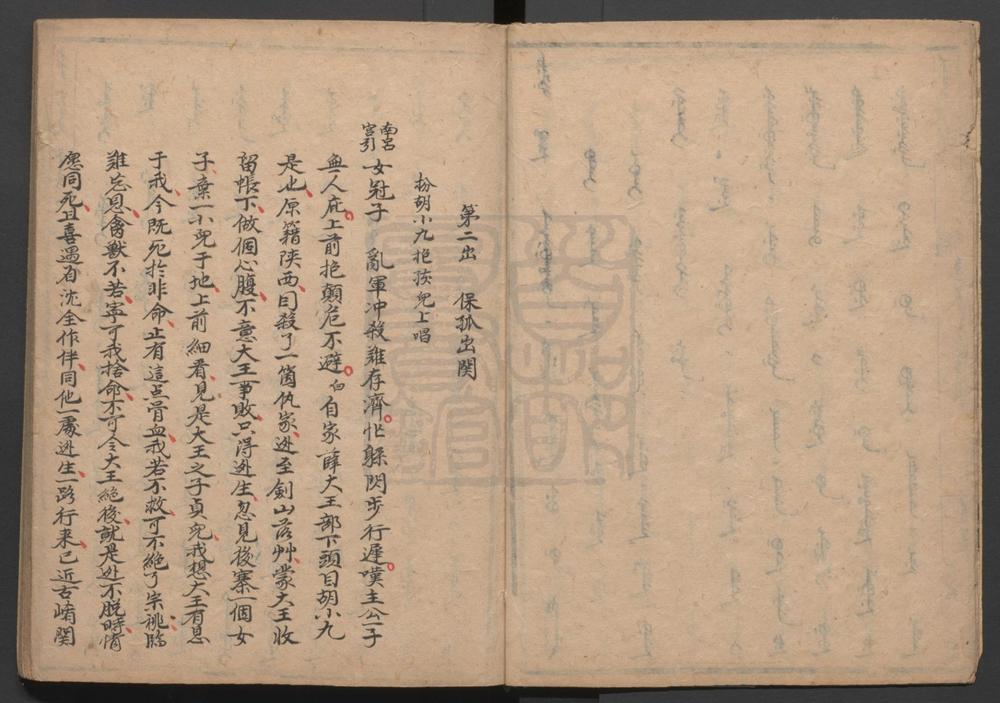 第二出　保孤出関
扮胡小九抱孩兒上唱
南呂宮引　女冠子　亂軍冲殺難存濟忙躱閃步行遲嘆主公一子
無人庇上前抱顛危不避白自家薛大王部下頭目胡小九
是也原籍陝西因殺了一箇仇家逃至劍山落艸蒙大王收
留帳下做個心腹不意大王事敗只得逃生忽見後寨一個女
子棄一小兒于地上前細看見是大王之子貞兒我想大王有恩
于我今既死於非命止有這点骨血我若不救可不絶了宗祧臨
難忘恩禽獸不若寧可我捨命不可令大王絶後就是逃不脱時情
愿同死且喜遇着沈全作伴同他一處逃生一路行来已近古崤関